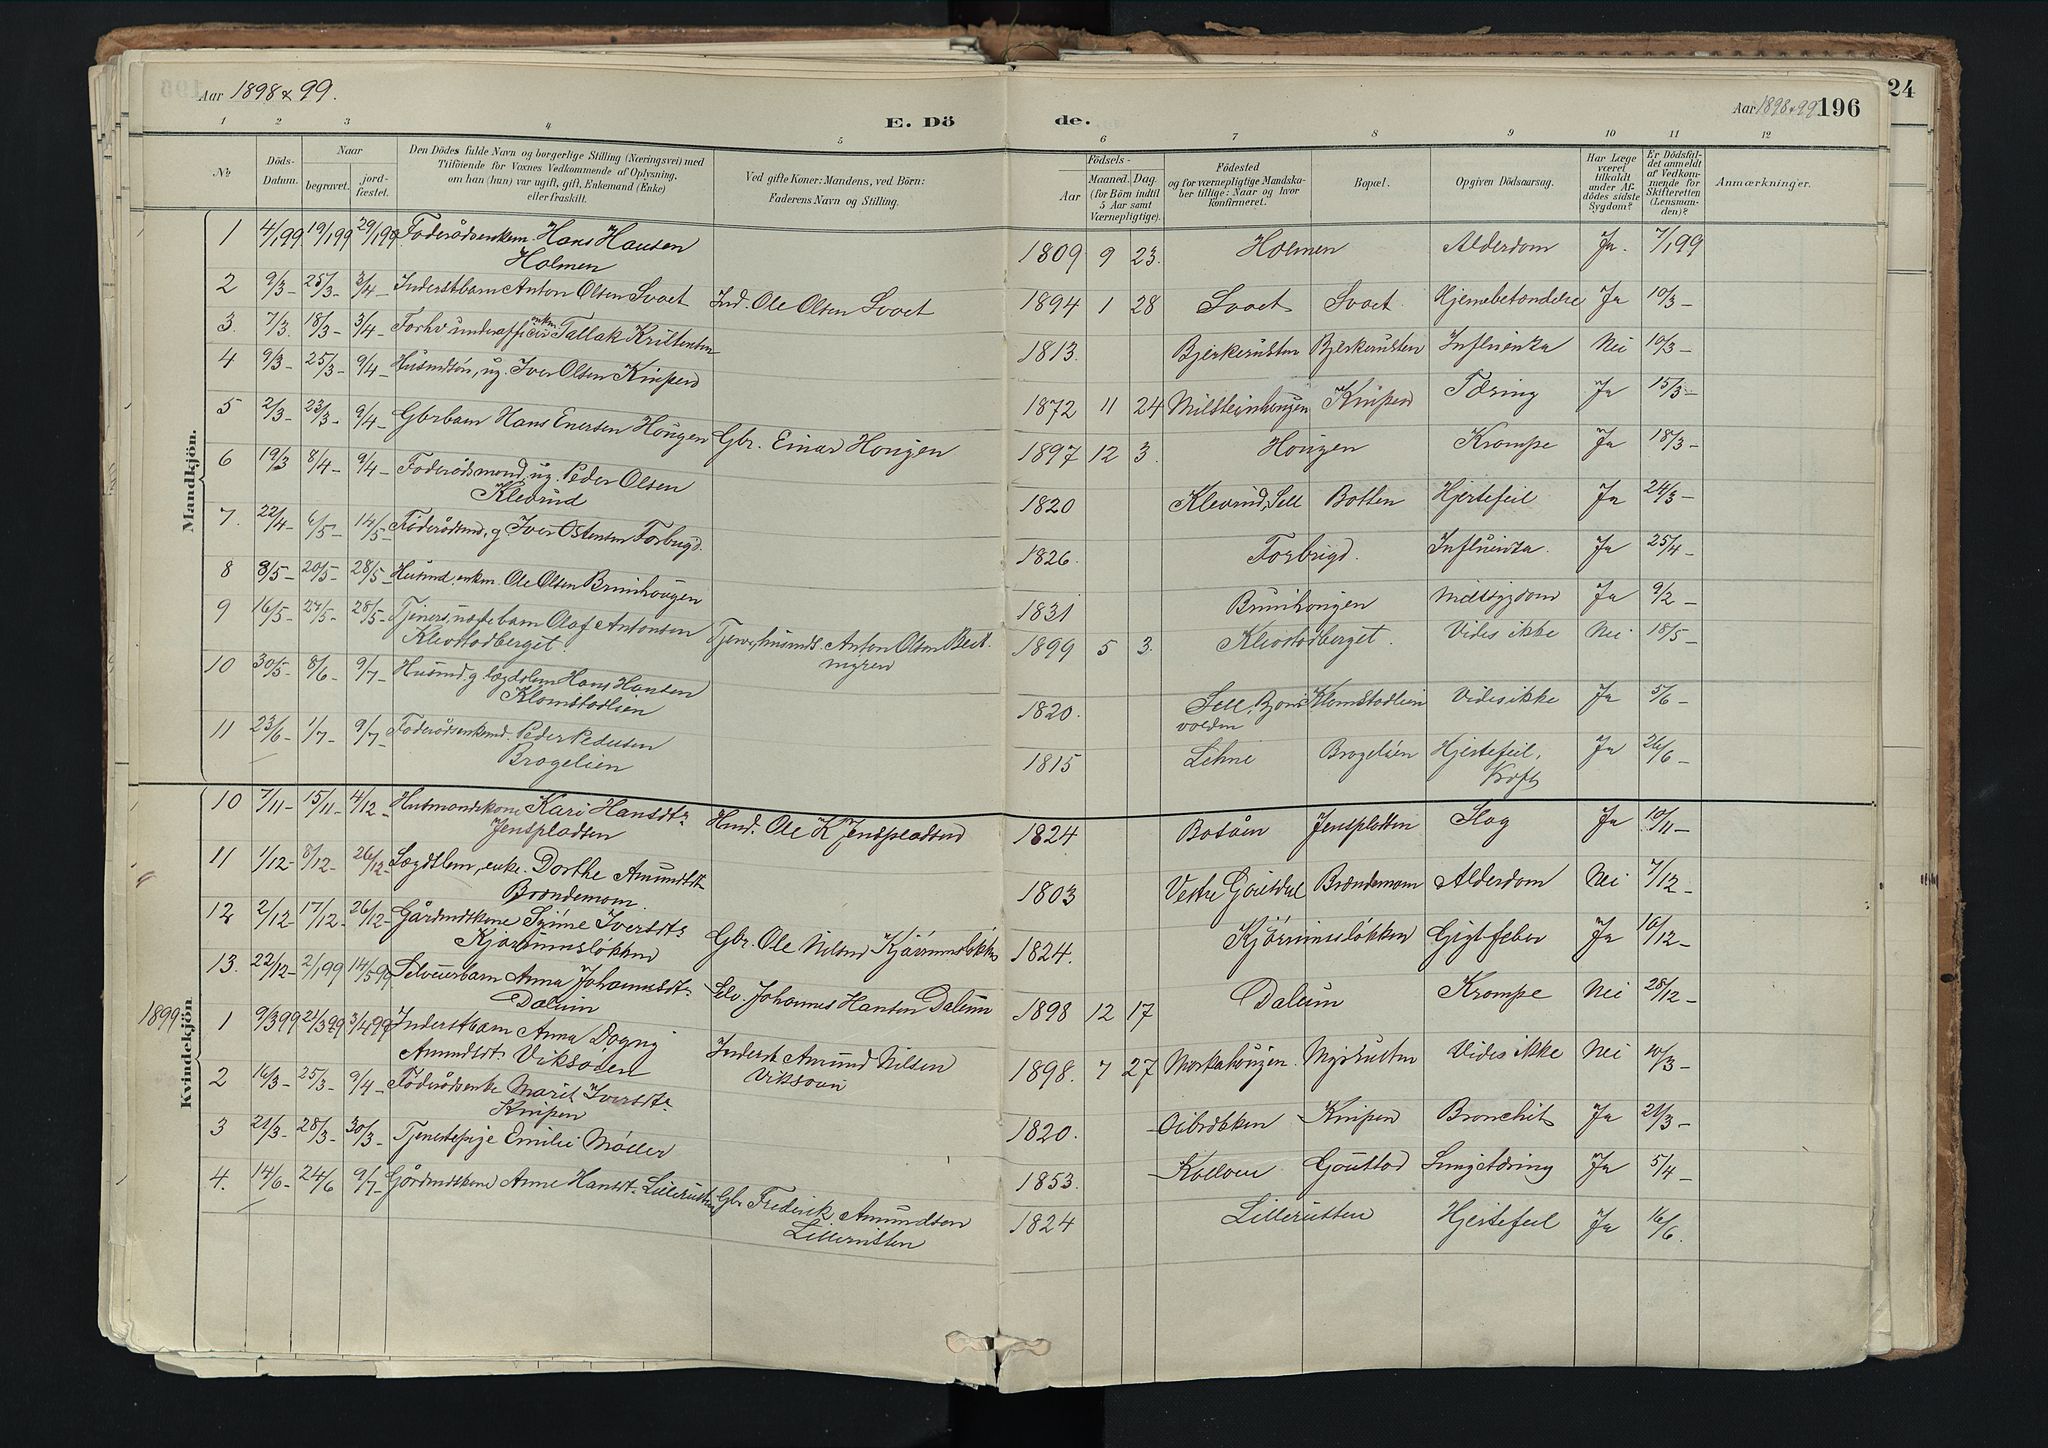 Aar 1898 & 99.
E. Döde.
Aar 1898 & 99
196
24
1 2 3 4 5 6 7 8 9 10 11 12
No
Döds-Datum.
Naar
begravet.
jord-fæstet.
Den Dödes fulde Navn og borgerlige Stilling (Næringsvei) med
Tilföiende for Voxnes Vedkommende af Oplysning,
om han (hun) var ugift, gift, Enkemand (Enke)
eller fraskilt.
Ved gifte Koner: Mandens, ved Börn:
Faderens Navn og Stilling.
Födsels-
Aar
Maaned. Dag
(for Börn indtil
5 Aar samt
Værnepligtige).
Födested
og for værnepligtige Mandska-
ber tillige: Naar og hvor
konfirmeret.
Bopæl.
Opgiven Dödsaarsag.
Har Læge
været
tilkaldt
under Af-
dödes sidste
Sygdom?
Er Dödsfal-
det anmeldt
af Vedkom-
mende for
Skifteretten
(Lensman-
den)?
Anmærkninger.
Mandkjön.
1 4/1 99 19/1 99 29/1 99 Foderådsenkem. Hans Hansen
Holmen
1809 9 23. Holmen Alderdom Ja. 7/1 99
2 9/3 - 25/3 - 3/4 - Inderstbarn Anton Olsen Svaet Ind. Ole Olsen Svaet 1894 1 28 Svaet Svaet. Hjernebetændelse Ja 10/3 -
3. 7/3. 18/3 - 3/4 - Forhv underofficer enkm Tallak Kristensen 1813. Bjerkerusten Bjerkerusten Influenza Nei 10/3 -
4 9/3 - 25/3 - 9/4 - Husmdsön, ug. Iver Olsen Kinpen 1872 11 24 Milsteinhougen Kinpen Tæring Ja 15/3 -
5 2/3 - 23/3 - 9/4 - Gbrbarn Hans Enersen Hougen Gbr. Einar Hougen 1897 12 3. Hougen Krampe Ja 18/3 -
6 19/3 8/4 - 9/4 - Foderådsmand, ug. Peder Olsen
Klevrud
1820 Klevrud, Sell Botten Hjertefeil Ja 24/3 -
7. 22/4 - 6/5 - 14/5 - Föderådsmd, g Iver Ostensen Forbrigd. 1826. Forbrigd. Influenza. Ja 25/4 -
8 8/5 - 20/5 - 28/5 - Husmd, enkm. Ole Olsen Brunhougen 1831 Brunhougen Ja 9/2 -
9 16/5 - 27/5 - 28/5 - Tjeners, uægte barn Olaf Antonsen
Klevstadberget.
Anton Olsen
myren
1899 5 3. Klevstadberget. Vides ikke Nei 18/5 -
10 30/5 - 8/6 - 9/7 - Husmd. g lægdslem Hans Hansen
Klomstadlien
1820. Sell, Klomstadlien Vides ikke Ja 5/6 -
volden
11 23/6 - 1/7 - 9/7 - Foderådsenkemd. Peder Pedersen
Bragelien
1815 Lihne Bragelien Hjertefeil, Ja 26/6 -
Kræft
Kvindekjön.
10 7/11 - 15/11 - 4/12 - Husmandskone Kari Hansdtr
Jenspladsen
Husd. Ole K Jenspladsen 1824 Bosåen Jenspladsen Slag Ja 10/11 -
11 1/12 - 8/12 - 26/12 - Lægdslem, enke. Dorthe Amundsdtr
Brændemoen.
1803 Vestre Gausdal Brændemoen Alderdom Nei 7/12 -
12 2/12 - 17/12 - 26/12 - Gårdmdskone Synne Iversdtr
Kjørumsløkken
Gbr. Ole Nilsen Kjørumsløkken 1824. Kjørumsløkken Gigtfeber Ja 10/12 -
13. 22/12 - 2/1 99 14/5 99 Selveierbarn Anna Johannesdtr
Dalum
Selv. Johannes Hansen Dalum 1898 12 17 Dalum Krampe Nei 28/12 -
1899
1 9/3 99 21/3 99 3/4 99 Inderstbarn Anna Dagny
Amundsdtr Viksveen
Inderst Amund Nilsen
Viksveen
1898. 7 27 Morkahougen Myrrusten Vides ikke Nei 10/3 -
2 16/3 - 25/3 - 9/4 - Föderådsenke Marit Iversdtr
Kinpen
1820. Oibrækken Kinpen Bronchit Ja 21/3 -
3 21/3 - 28/3 - 30/3 - Tjenestepige Emilie Møller 1853. Kolloen Goustad Lungetæring Ja 5/4 -
4. 14/6 - 24/6 9/7 - Gårdmdskone Anne Hansdtr Lillerusten Gbr Frederik Amundsen
Lillerusten
1824 Lillerusten Hjertefeil Ja 16/6.